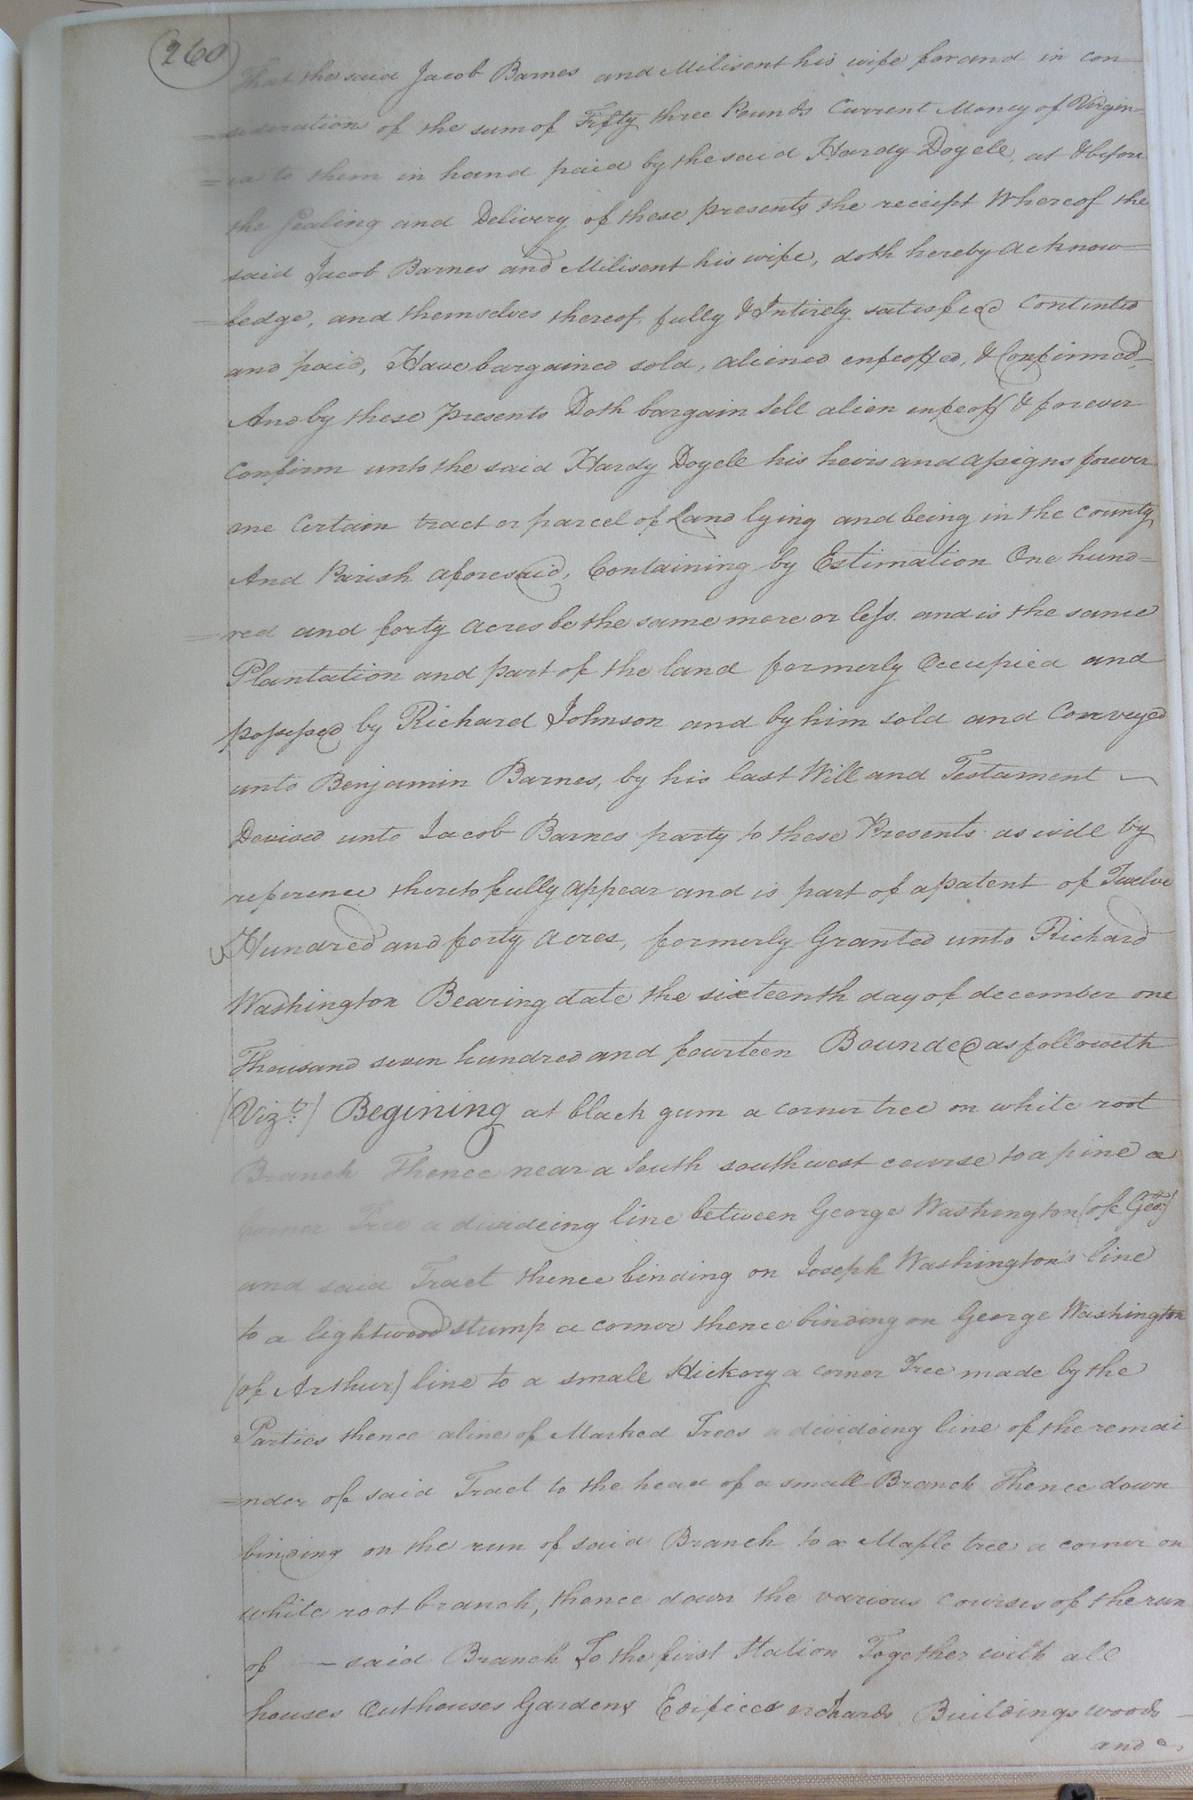 260
That the said Jacob Barnes and Milisent his wife for and in con
=sideration of the sum of Fifty three Pounds Current Money of Virgin=
=ia to them in hand paid by the said Hardy Doyele, at & before
the Sealing and Delivery of these presents the receipt Whereof the
said Jacob Barnes and Milisent his wife, doth hereby acknow=
=ledge, and themselves thereof fully & Intirely satisfied Continted
and paid, Have bargained sold, aliened enfeoffed, & Confirmed,
And by these Presents Doth bargain Sell alien enfeoff & forever
Confirm unto the said Hardy Doyele his heirs and assigns forever
one Certain tract or parcel of Land lying and being in the county
And Parish aforesaid, Containing by Estimation One hund=
=red and forty acres be the same more or less. and is the same
Plantation and part of the land formerly Occupied and
possessed by Richard Johnson and by him sold and Conveyed
unto Benjamin Barnes, by his last Will and Testament
Devised unto Jacob Barnes party to these Presents as will by
reference thereto fully appear and is part of a patent of Twelve
Hundred and forty acres, formerly Granted unto Richard
Washington Bearing date the sixteenth day of december one
Thousand seven hundred and fourteen Bounded as followeth
(Vizt.) Begining at black gum a corner tree on white root
Branch Thence near a South southwest course to a pine a
corner Tree a divideing line between George Washington (of Geo:)
and said Tract thence binding on Joseph Washington's line
to a lightwood stump a corner thence binding on George Washington
(of Arthur) line to a small Hickory a corner Tree made by the
Parties thence a line of Marked Trees a divideing line of the remai
=nder of said Tract to the head of a small Branch Thence down
binding on the run of said Branch to a Maple tree a corner on
white root branch, thence down the various courses of the run
of — said Branch To the first Station Together with all
houses Outhouses Gardens Edifices orchards Buildings woods
and